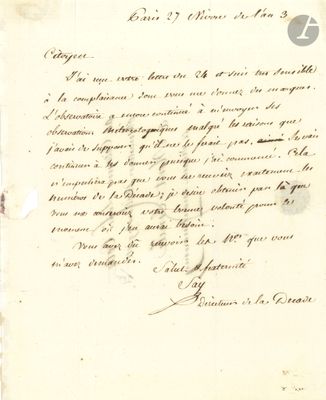 Paris 27 Nivose de l'an 3
Citoyen
J'ai reçu votre lettre du 24 et suis tres sensible
à la complaisance dont vous me donnez des marques.
L'observatoire a encore continué à m'envoyer ses
observations météorologiques malgré les raisons que
j'avais de supposer qu'il ne le ferait pas. Je vais
continuer à les donner puisque j'ai commencé. Cela
n'empechera pas que vous ne receviez exactement les
numeros de la Decade; je desire obtenir par là que
vous me conserviez votre bonne volonté pour le
moment où j'en aurai besoin.
Vous avez dû recevoir les Nos que vous
m'avez demandés.
Salut & fraternité
Say
Directeur de la Decade